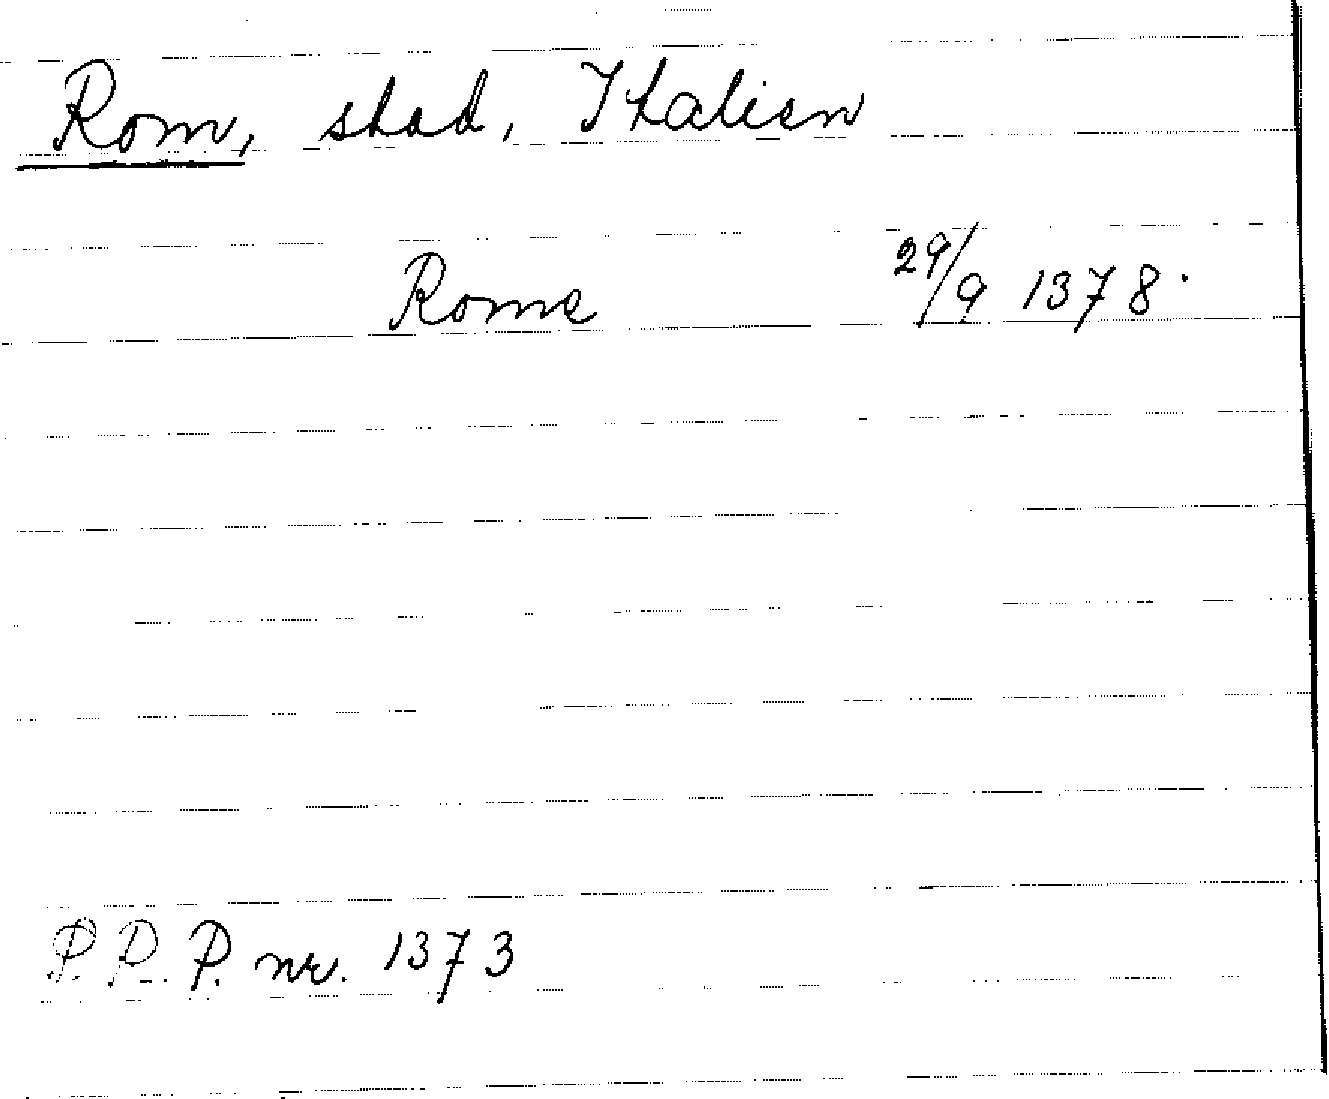 Rom, stad, Italien
Rome 29/9 1378.
P.R.P. nr. 1373